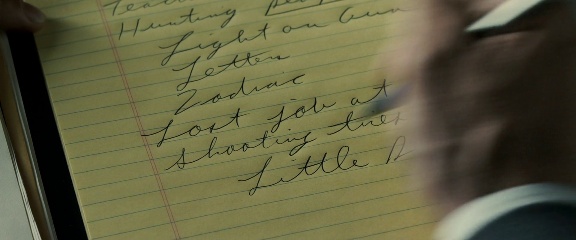 Hunting
Light on Gun
Letters
Zodiac
Lost job at
shooting
Little